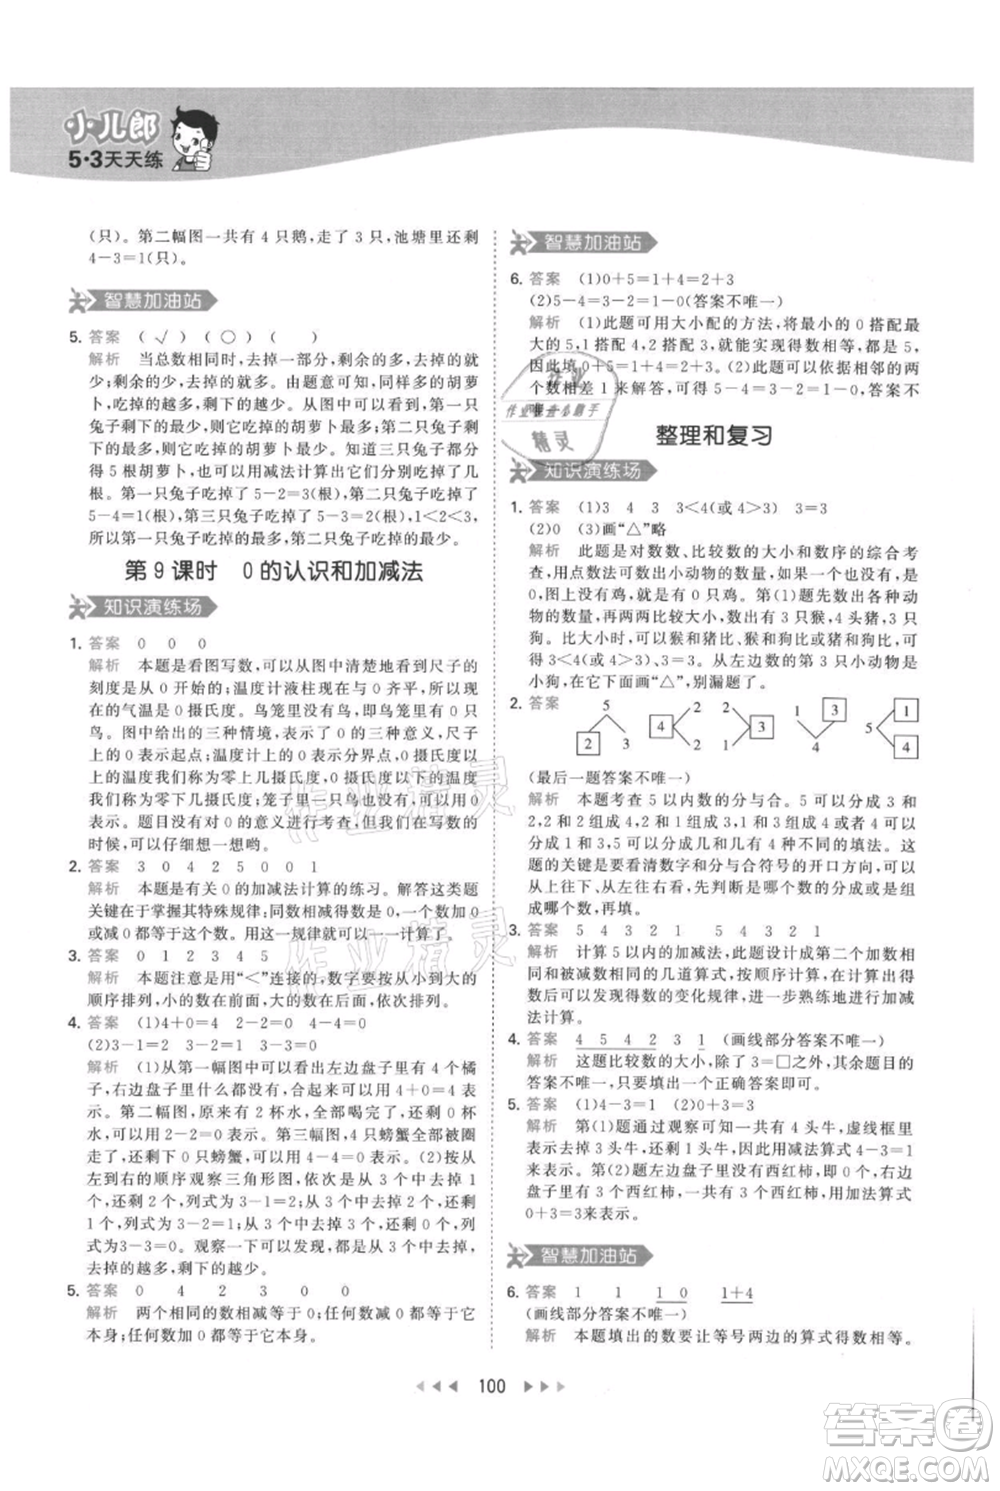 小儿郎
5·3天天练
(只)。第二幅图一共有 4 只鹅,走了 3 只,池塘里还剩
4-3=1(只)。
智慧加油站
5. 答案 ( √ ) ( ○ ) ( )
解析 当总数相同时,去掉一部分,剩余的多,去掉的
就少;去掉的多,剩余的就少。由题意可知,同样多的胡萝
卜,吃掉的越多,剩下的越少。从图中可以看出,第一只
兔子吃掉的最少,第二只兔子吃掉的最多。知道三只兔子
得到 5 根胡萝卜,可以用减法计算出它们分别吃掉了几
根。第一只兔子吃掉了 5-2=3(根),第二只兔子吃掉了
5-1=4(根),第三只兔子吃掉了 5-3=2(根),1<2<3,
所以第一只兔子吃掉的最少,第二只兔子吃掉的最多。
第 9 课时 0 的认识和加减法
知识演练场
1. 答案 0 0 0
解析 本题是看图写数,可以从图中清楚地看到尺子的
刻度是从 0 开始的;温度计液柱托起的小球与 0 齐平,表示
现在的气温是 0 摄氏度。鸟笼里没有鸟,所以鸟的只数是
0。图中出现的三种情境,揭示了 0 的三种含义:尺子上的
0 表示起点;温度计上的 0 表示分界点,0 摄氏度以上的温度
我们称为零上几摄氏度,0 摄氏度以下的温度
我们称为零下几摄氏度;笼子里一只鸟也没有用 0 来表
示。题目没有对 0 的意义进行考查,但我们在写数的
时候,可以仔细想一想哟。
2. 答案 3 0 4 2 5 0 0 1
解析 本题是有关 0 的加减法计算的练习。解答这类题
关键在于掌握其特殊规律:同数相减得数是 0,0 加几得
几,几减 0 还得几,用这一规律就可以一一计算了。
3. 答案 0 1 2 3 4 5
解析 本题注意是用“<”连接的,数要按照从小到大的
顺序排列,小的数在前面,大的数在后面,依次排列。
4. 答案 (1)4+0=4 2-2=0 4-4=0
(2)3-1=2 3-2=1 3-3=0
解析 (1)从第一幅图中可以看出左边盘子里有 4 个橘
子,右边盘子里什么都没有,合起来可以用 4+0=4
表示。第二幅图,原来有 2 杯水,全部喝完了,还剩 0 杯
水,就可以用 2-2=0 表示。第三幅图,4 只螃蟹都被圈
走了,还剩 0 只螃蟹,列式为 4-4=0。(2)可以按照从
左到右的顺序依次观察三角形图,从 3 个中去掉 1
个,还剩 2 个,列式为 3-1=2;从 3 个中去掉 2 个,还剩
1 个,列式为 3-2=1;从 3 个中去掉 3 个,还剩 0 个,列式
为 3-3=0。观察一下可以发现:从 3 个中去掉,
去掉的越多,剩下的越少。
5. 答案 0 4 2 3 0 0
解析 两个相同的数相减等于 0;任何数减 0 都等于它
本身;任何数加 0 都等于它本身。
智慧加油站
6. 答案 (1)0+5=1+4=2+3
(2)5-4=3-2=1-0(答案不唯一)
解析 (1)此题可用大小配的方法,将最小的 0 搭配最
大的 5,1 搭配 4,2 搭配 3,就能实现得数相等,都是 5,
因此填 0+5=1+4=2+3。(2)此题可以依据相邻的两
个数相差 1 来解答,可以填 5-4=3-2=1-0,答案不
唯一。
整理和复习
知识演练场
1. 答案 (1)3 4 3 3<4(或 4>3) 3=3
(2)0 (3)画“△”略
解析 此题是对数数、比较数的大小和数序的综合考
查,用点数法可统计小动物的数量,没有的小动物记为
0,图上没有鸡,所以有 0 只鸡。第(1)题先数出各种动
物的数量,再两两比较大小,发现有 3 只猴,4 头猪,3 只
狗。比大小时,可以猴和猪比、猴和狗比,也可以猪和狗
比,可得 3<4(或 4>3),3=3。从左边数的第 3 只小动物是
小狗,所以在它下面画“△”,别漏题了。
2. 答案 5 3 2 4 2 2 1 3 2 4 5 1 4
(最后一题答案不唯一)
解析 本题考查 5 以内数的分与合。5 可以分成 3 和
2,2 和 2 组成 4,3 可以分成 1 和 2,1 和 3 组成 4,5 可以
分成 1 和 4,5 可以分成几和几有 4 种不同的填法。这
题的关键是要看清数字和分与合符号的开口方向,到
底是让我们分还是让我们合,先判断是分数还是合
数,再填。
3. 答案 5 4 3 2 1 5 4 3 2 1
解析 计算 5 以内的加减法,题目设计成第二个加数相
同和被减数相同的几道算式,按顺序计算,在计算出得
数后可以发现得数的变化规律,进一步熟练地进行加减
法计算。
4. 答案 4 5 4 2 3 1 (画线部分答案不唯一)
解析 这题比较数的大小,除了 3=□之外,其余几题的
答案不唯一,只要填出一个正确答案即可。
5. 答案 (1)4-3=1 (2)0+3=3
解析 第(1)题通过观察可知一共有 4 头牛,虚线框里
表示去掉了 3 头牛,还剩 1 头牛,因此用减法算式 4-
3=1 表示。第(2)题左边盘子里没有西红柿,即 0 个,右边
盘子里有 3 个西红柿,合起来有 3 个西红柿,用加法算式
0+3=3 来表示。
智慧加油站
6. 答案 1 1 1 0 1+4
(画线部分答案不唯一)
解析 本题填出的数要让等号两边的算式得数相等。
100
作业精灵
答案圈
MXQE.COM